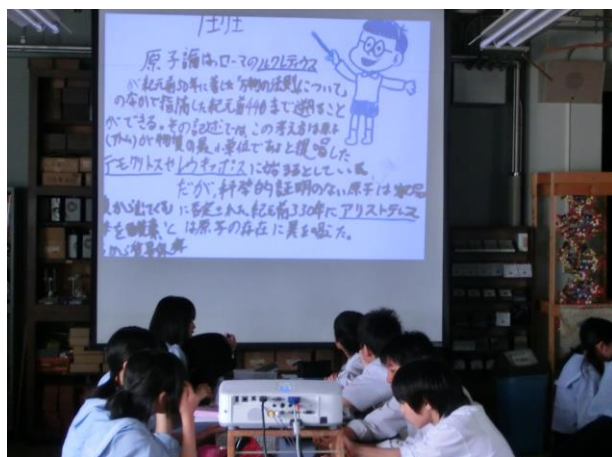 原子論は、ローマのルクレティウス
が紀元前50年に著した「万物の法則について」
のなかで指摘した紀元前440まで遡ること
ができる。その記述では、この考え方は原子
(アトム)が物質の最小単位であると提唱した
デモクリトスやレウキッポスに始まるとしている
だが、科学的証明のない原子は
に否定された紀元前330年にアリストテレス
は原子の存在に異を唱えた。